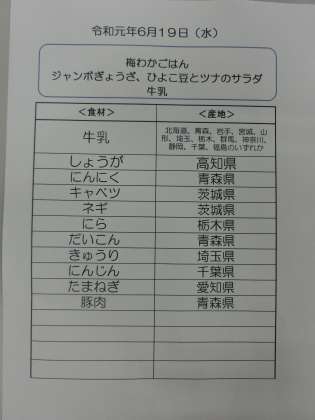 令和元年6月19日（水）
梅わかごはん
ジャンボぎょうざ、ひよこ豆とツナのサラダ
牛乳
＜食材＞ ＜産地＞
牛乳 北海道、青森、岩手、宮城、山
形、埼玉、栃木、群馬、神奈川、
静岡、千葉、福島のいずれか
しょうが 高知県
にんにく 青森県
キャベツ 茨城県
ネギ 茨城県
にら 栃木県
だいこん 青森県
きゅうり 埼玉県
にんじん 千葉県
たまねぎ 愛知県
豚肉 青森県